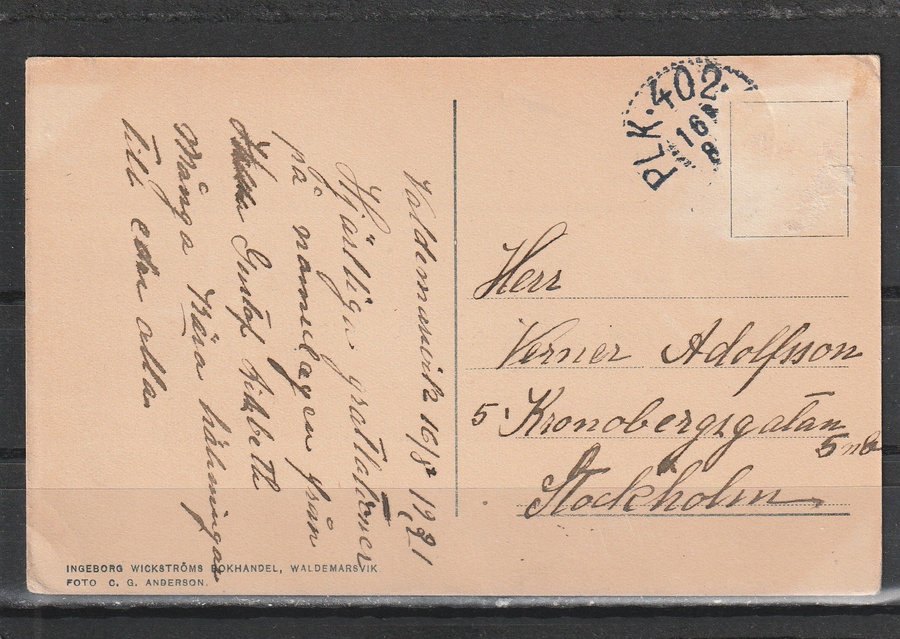 Valdemarsvik 16/8 1921
Hjärtliga gratulationer
på namnsdagen från
Gustof Lisbeth
Många Kära hälsningar
till eder alla
PLK. 402.
16
8
Herr
Verner Adolfsson
5. Kronobergsgatan
5 nb
Stockholm
INGEBORG WICKSTRÖMS BOKHANDEL, WALDEMARSVIK
FOTO C. G. ANDERSON.